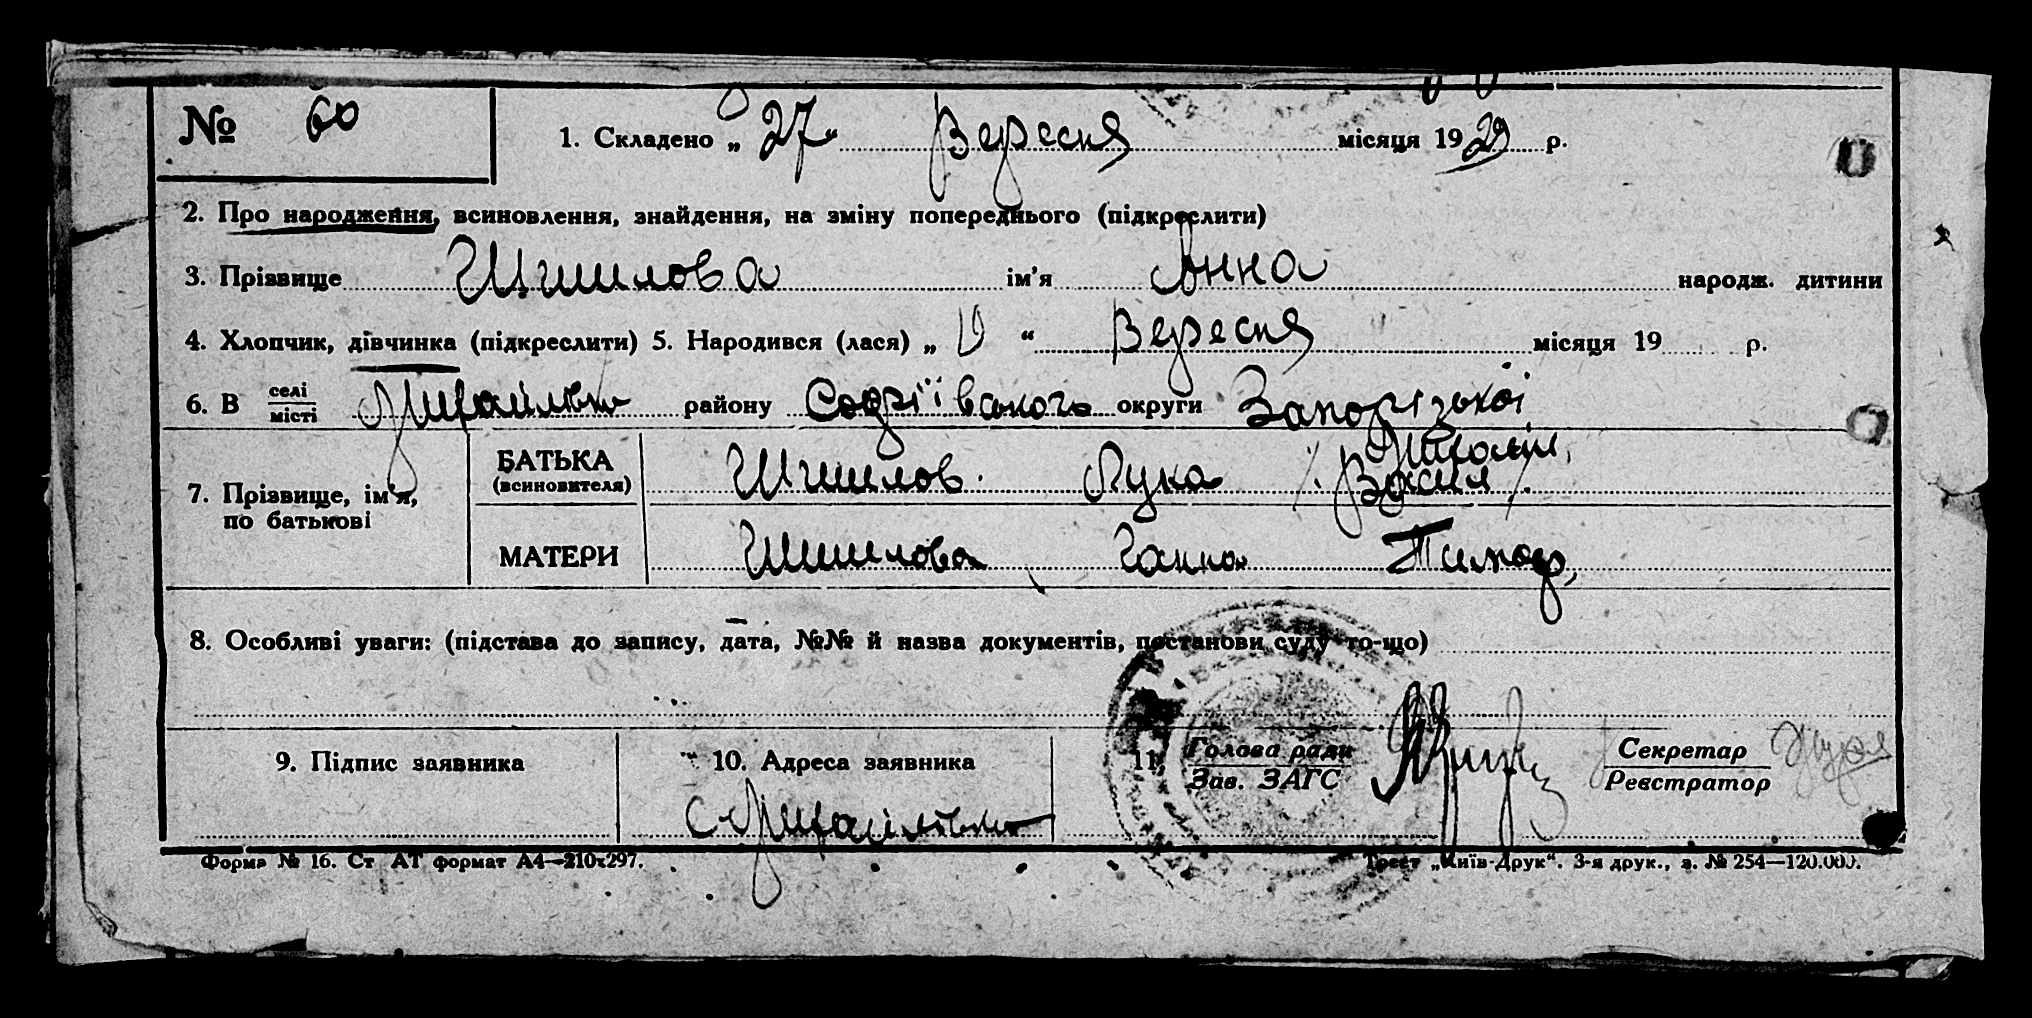 № 60 1. Складено „27“ Вересня місяця 1929 р.
2. Про народження, всиновлення, знайдення, на зміну попереднього (підкреслити)
3. Прізвище Шишлова ім’я Анна народж. дитини
4. Хлопчик, дівчинка (підкреслити) 5. Народився (лася) „ “ Вересня місяця 19 р.
6. В селі місті Михайлівка району Софіївського округи Запорізької
7. Прізвище, ім’я, по батькові
БАТЬКА (всиновителя) Шишлов Лука
МАТЕРИ Шишлова Ганна Тимоф.
8. Особливі уваги: (підстава до запису, дата, №№ й назва документів, постанови суду то-що)
9. Підпис заявника 10. Адреса заявника 11. Голова ради Секретар
Зав. ЗАГС Реєстратор
с. Михайлівка
Форма № 16. Ст АТ формат А4—210х297. Трест „Київ-Друк“. 3-я друк., з. № 254—120.000.